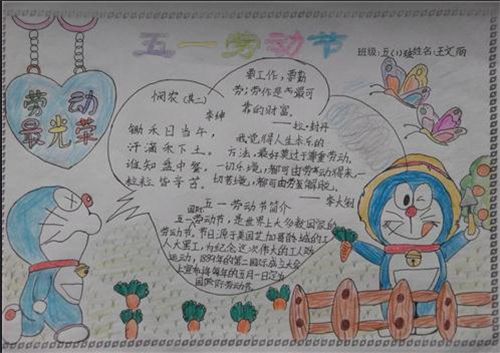 五一劳动节
班级:五(1)班姓名:王文丽
劳动
最光荣
悯农(其二)
李绅
锄禾日当午,
汗滴禾下土。
谁知盘中餐,
粒粒皆辛苦。
要工作,要勤
劳:劳作是最可
靠的财富。
——拉·封丹
我觉得人生求乐的
方法,最好莫过于尊重劳动。
一切乐境,都可由劳动得来,一
切苦境,都可由劳动解脱。
——李大钊
国际五一劳动节简介
五一劳动节,是世界上大多数国家的
劳动节。节日源于美国芝加哥城的工
人大罢工,为纪念这次伟大的工人
运动,1889年的第二国际成立大会
上宣布将每年的五月一日定为
国际劳动节。